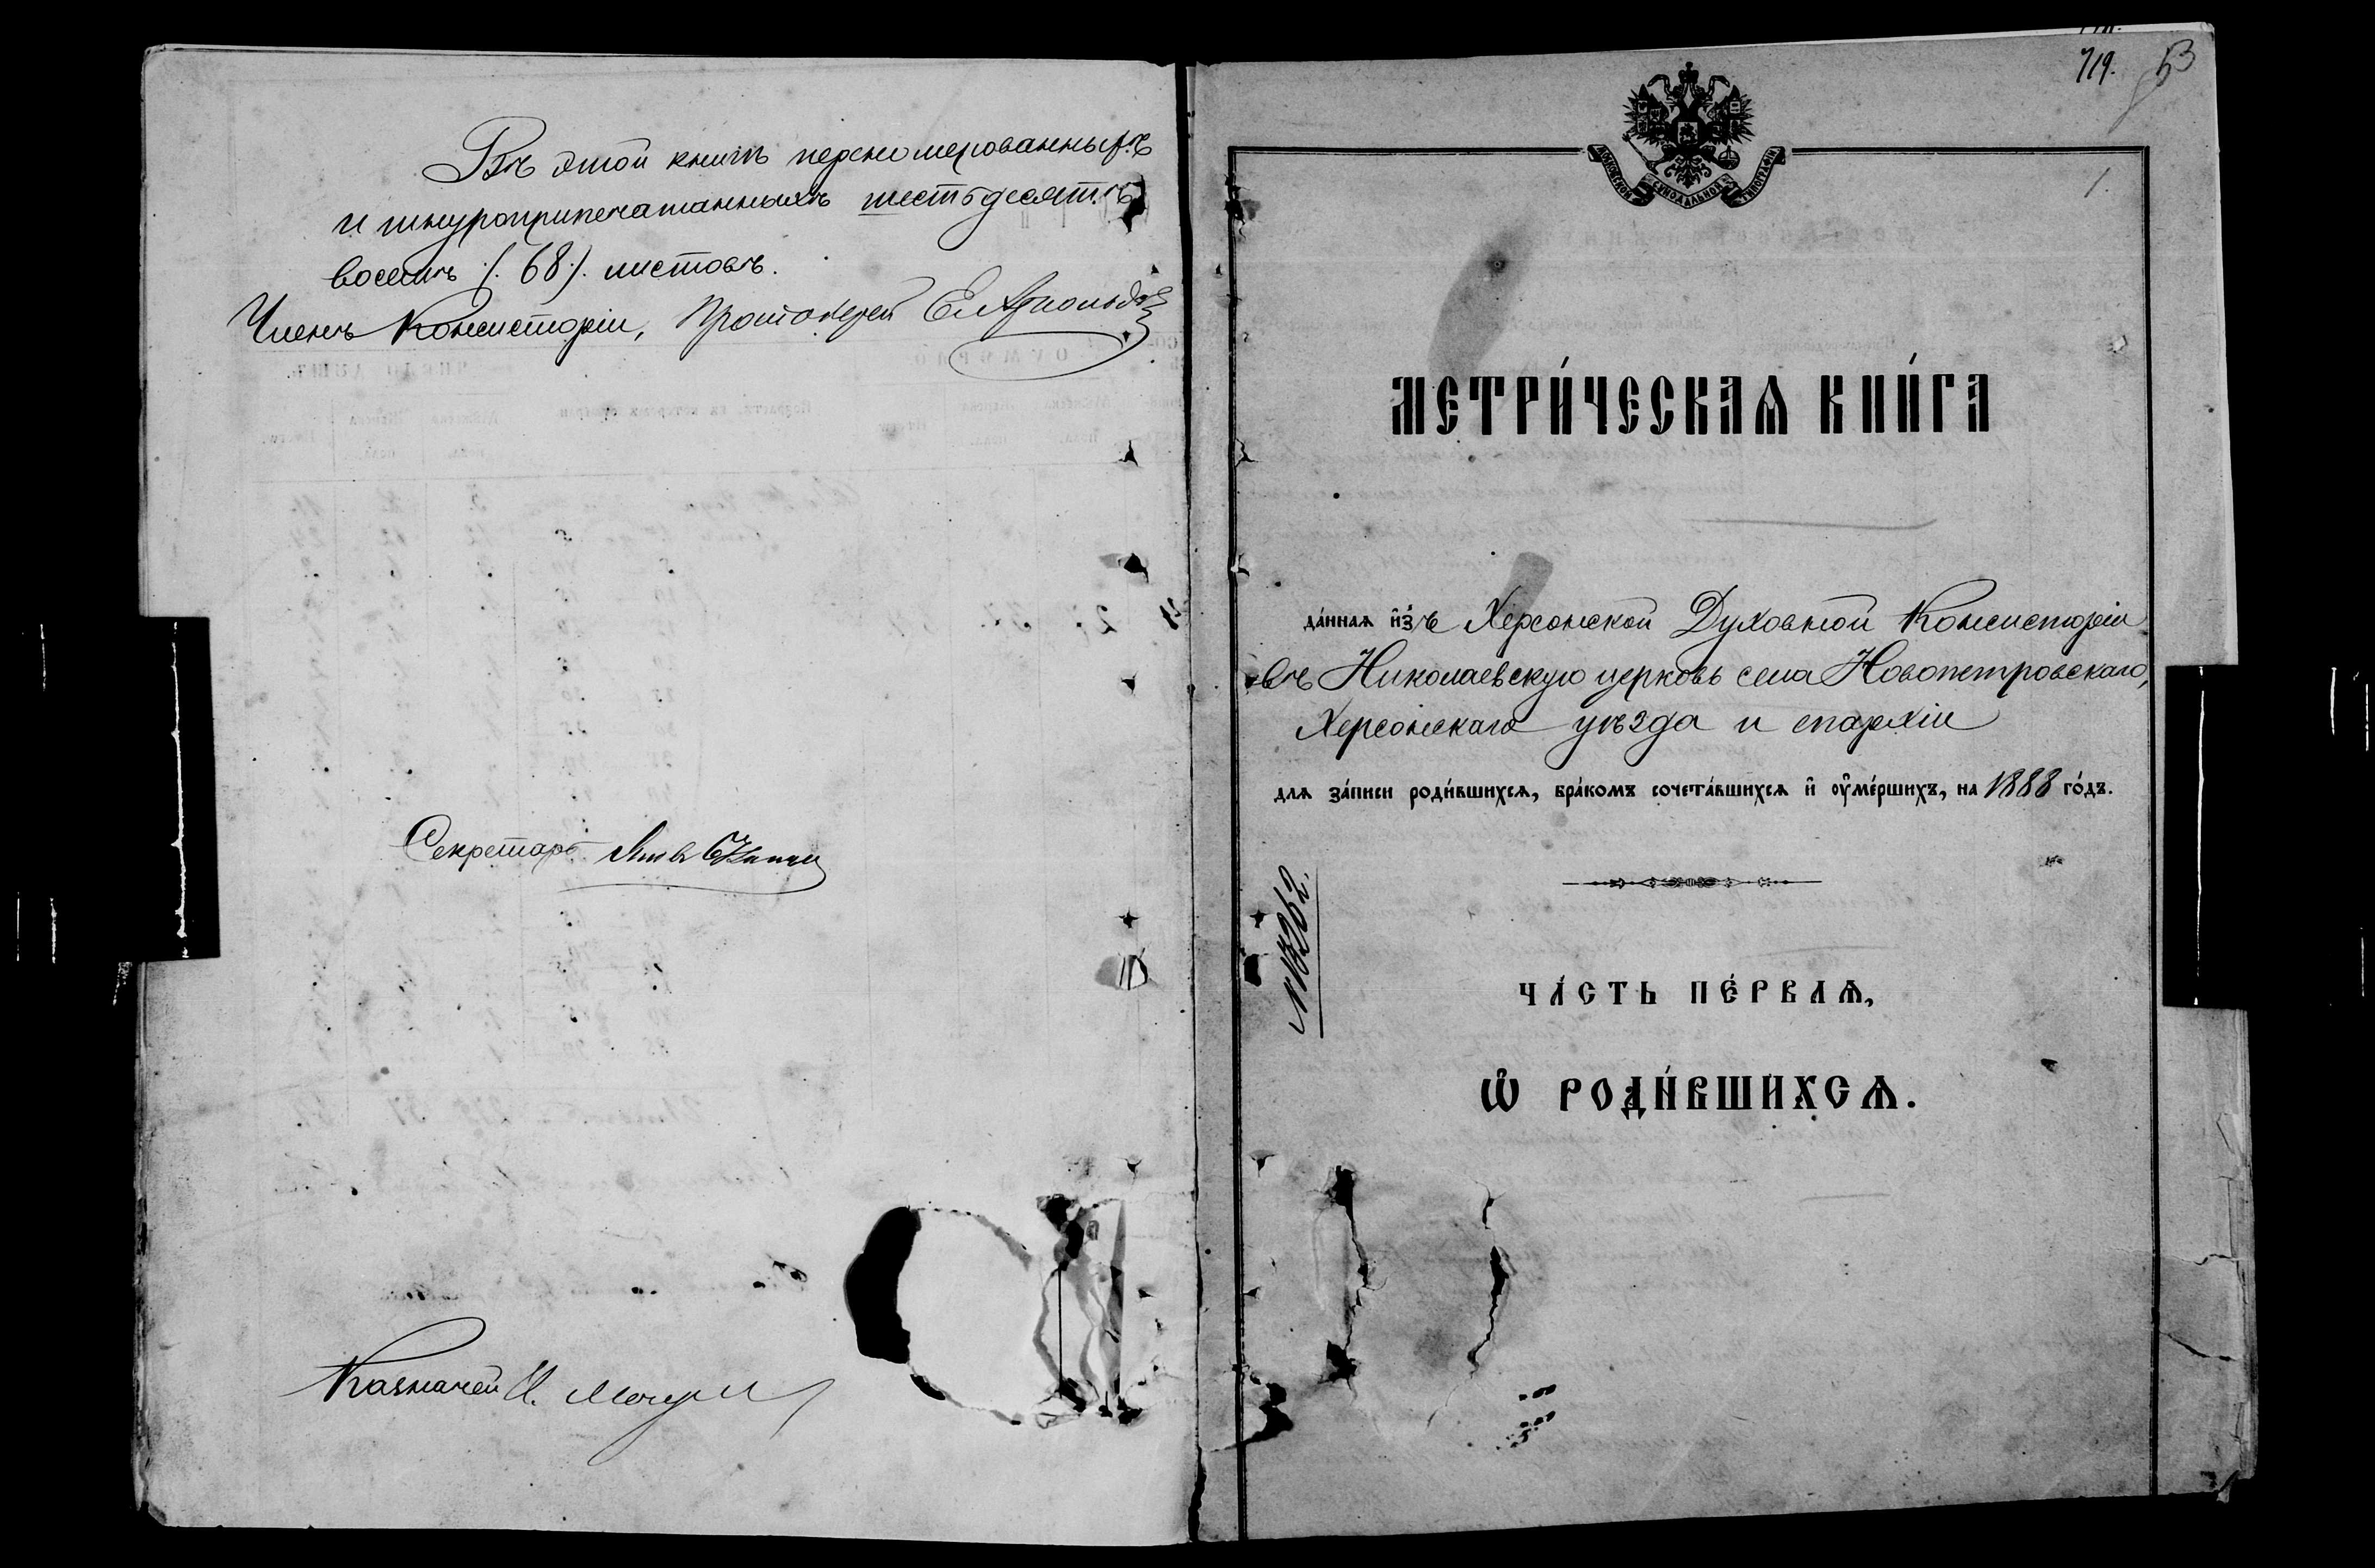 Въ этой книгѣ перенумерованныхъ
и шнуроприпечатанныхъ шестьдесятъ
восемь /. 68 /. листовъ.
Членъ Консисторіи, Протоіерей
Секретарь
Казначей И.
719. 53
МОСКОВСКОЙ СѴНОДАЛЬНОЙ ТИПОГРАФІИ
1.
МЕТРИ́ЧЕСКАѦ КНИ́ГА
да́ннаѧ и҆зъ Херсонской Духовной Консисторіи
въ Николаевскую церковь села Новопетровскаго,
Херсонскаго уѣзда и епархіи
длѧ за́писи роди́вшихсѧ, бра́комъ сочета́вшихсѧ и҆ ᲂу҆ме́ршихъ, на 1888 го́дъ.
ЧА́СТЬ ПЕ́РВАѦ,
Ѽ РОДИ́ВШИХСѦ.